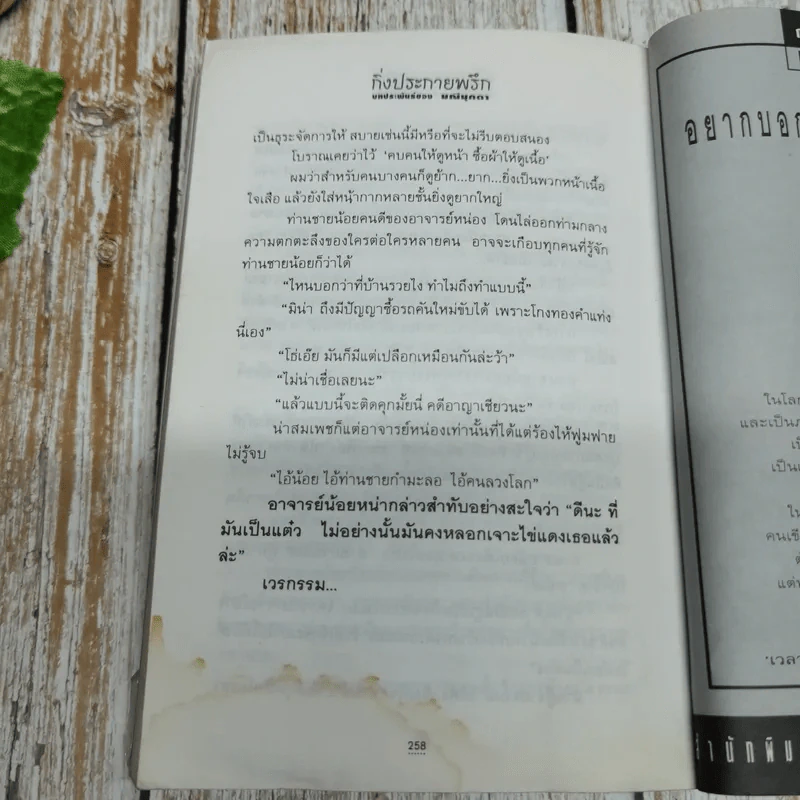 กิ่งประกายพรึก
บทประพันธ์ของ มณีมุกดา
เป็นธุระจัดการให้ สบายเช่นนี้มีหรือที่จะไม่รีบตอบสนอง
โบราณเคยว่าไว้ ‘คบคนให้ดูหน้า ซื้อผ้าให้ดูเนื้อ’
ผมว่าสำหรับคนบางคนก็ดูย้าก...ยาก...ยิ่งเป็นพวกหน้าเนื้อ
ใจเสือ แล้วยังใส่หน้ากากหลายชั้นยิ่งดูยากใหญ่
ท่านชายน้อยคนดีของอาจารย์หน่อง โดนไล่ออกท่ามกลาง
ความตกตะลึงของใครต่อใครหลายคน อาจจะเกือบทุกคนที่รู้จัก
ท่านชายน้อยก็ว่าได้
“ไหนบอกว่าที่บ้านรวยไง ทำไมถึงทำแบบนี้”
“มิน่า ถึงมีปัญญาซื้อรถคันใหม่ขับได้ เพราะโกงทองคำแท่ง
นี่เอง”
“โธ่เอ๊ย มันก็มีแต่เปลือกเหมือนกันล่ะว้า”
“ไม่น่าเชื่อเลยนะ”
“แล้วแบบนี้จะติดคุกมั้ยนี่ คดีอาญาเชียวนะ”
น่าสมเพชก็แต่อาจารย์หน่องเท่านั้นที่ได้แต่ร้องไห้ฟูมฟาย
ไม่รู้จบ
“ไอ้น้อย ไอ้ท่านชายกำมะลอ ไอ้คนลวงโลก”
อาจารย์น้อยหน่ากล่าวสำทับอย่างสะใจว่า “ดีนะ ที่
มันเป็นแต๋ว ไม่อย่างนั้นมันคงหลอกเจาะไข่แดงเธอแล้ว
ล่ะ”
เวรกรรม...
258
อยากบอก
ในโลก
และเป็น
เป็น
ใน
แต่